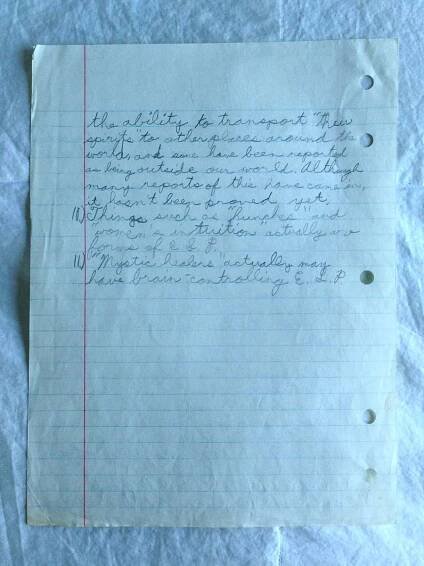 the ability to transport "their
spirits" to other places around the
world, and some have been reported
as being outside our world. Although
many reports of this have came in,
it hasn't been proved yet.
10) Things such as "hunches" and
"women's intuition" actually are
forms of E.S.P.
11) "Mystic healers" actually may
have brain-controlling E.S.P